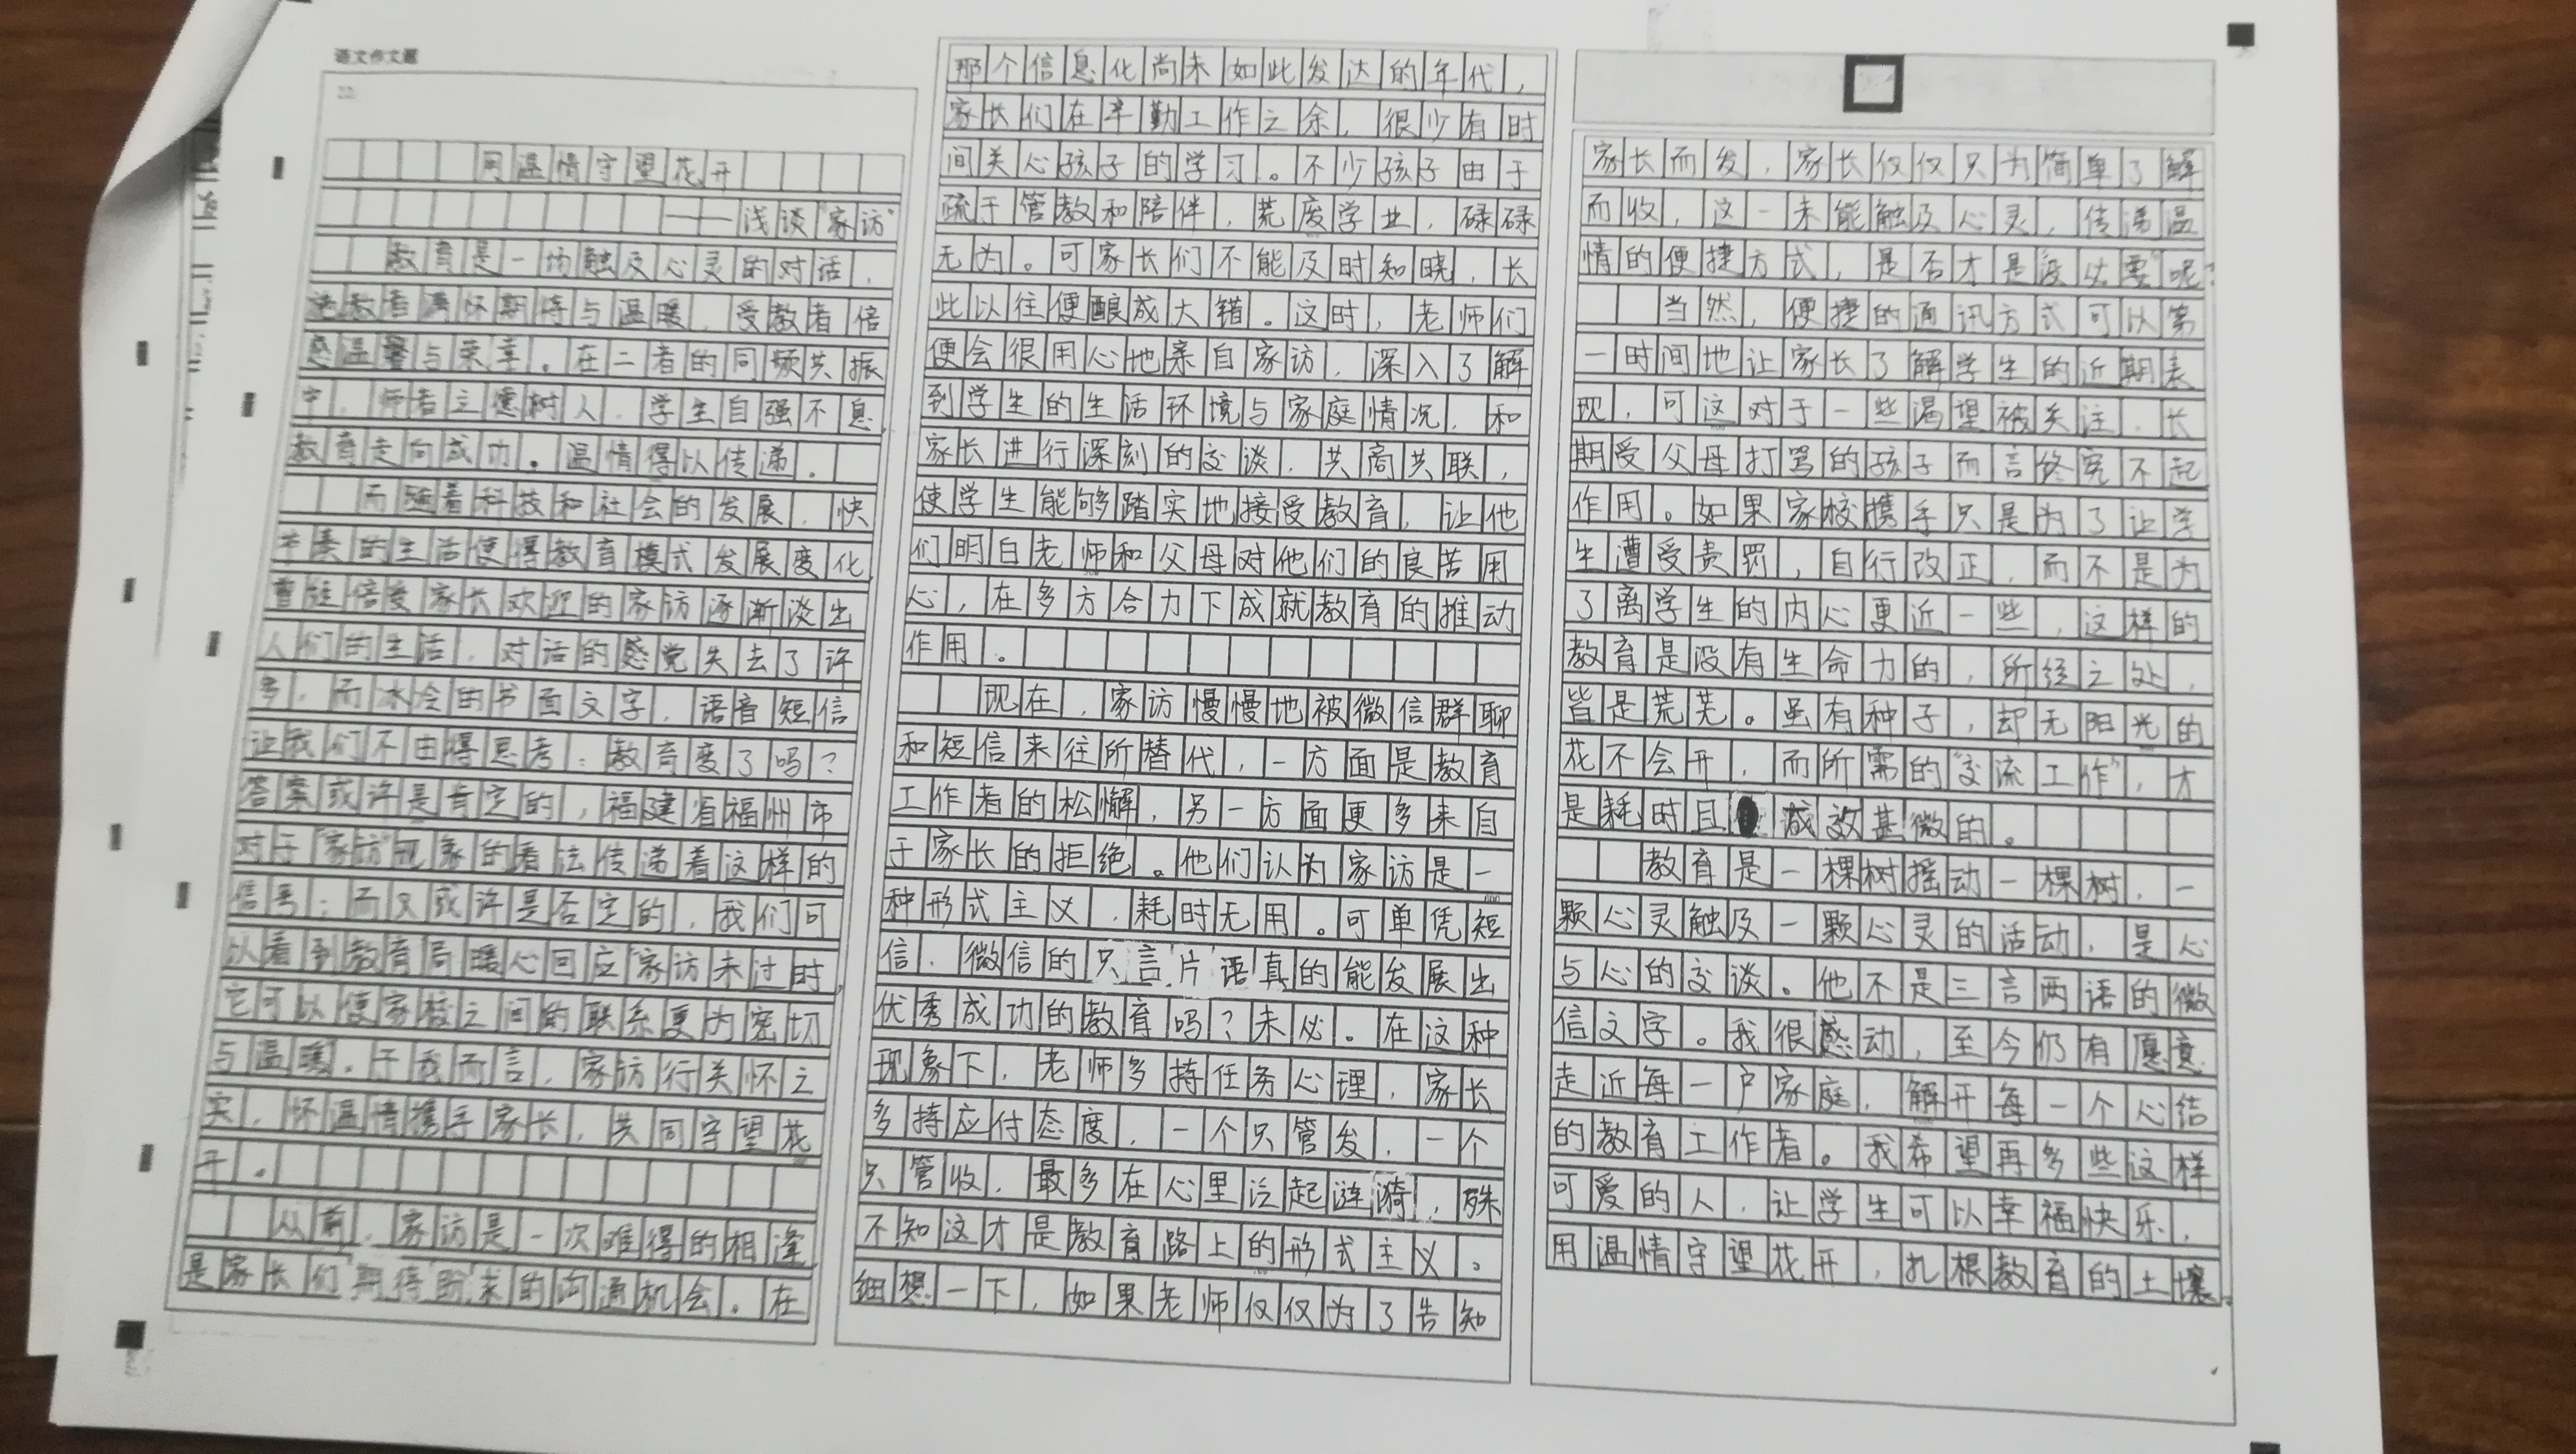 语文作文题
22.
用温情守望花开
——浅谈“家访”
教育是一场触及心灵的对话,
施教者满怀期待与温暖,受教者倍
感温馨与荣幸。在二者的同频共振
中,师者立德树人,学生自强不息,
教育走向成功。温情得以传递。
而随着科技和社会的发展,快
节奏的生活使得教育模式发展变化,
曾经倍受家长欢迎的家访逐渐淡出
人们的生活,对话的感觉失去了许
多,而冰冷的书面文字,语音短信
让我们不由得思考:教育变了吗?
答案或许是肯定的,福建省福州市
对于“家访”现象的看法传递着这样的
信号;而又或许是否定的,我们可
以看到教育局暖心回应“家访未过时,
它可以使家校之间的联系更为密切
与温暖。于我而言,家访行关怀之
实,怀温情携手家长,共同守望花
开。
从前,家访是一次难得的相逢,
是家长们“期待”盼来的沟通机会。在
那个信息化尚未如此发达的年代,
家长们在辛勤工作之余,很少有时
间关心孩子的学习。不少孩子由于
疏于管教和陪伴,荒废学业,碌碌
无为。可家长们不能及时知晓,长
此以往便酿成大错。这时,老师们
便会很用心地亲自家访,深入了解
到学生的生活环境与家庭情况,和
家长进行深刻的交谈,共商共联,
使学生能够踏实地接受教育,让他
们明白老师和父母对他们的良苦用
心,在多方合力下成就教育的推动
作用。
现在,家访慢慢地被微信群聊
和短信来往所替代,一方面是教育
工作者的松懈,另一方面更多来自
于家长的拒绝。他们认为家访是一
种形式主义,耗时无用。可单凭短
信、微信的只言片语真的能发展出
优秀成功的教育吗?未必。在这种
现象下,老师多持任务心理,家长
多持应付态度,一个只管发,一个
只管收,最多在心里泛起涟漪,殊
不知这才是教育路上的形式主义。
细想一下,如果老师仅仅为了告知
家长而发,家长仅仅只为简单了解
而收,这一未能触及心灵,传递温
情的便捷方式,是否才是没必要”呢?
当然,便捷的通讯方式可以第
一时间地让家长了解学生的近期表
现,可这对于一些渴望被关注、长
期受父母打骂的孩子而言终究不起
作用。如果家校携手只是为了让学
生遭受责罚,自行改正,而不是为
了离学生的内心更近一些,这样的
教育是没有生命力的,所经之处,
皆是荒芜。虽有种子,却无阳光的
花不会开,而所需的“交流工作”,才
是耗时且成效甚微的。
教育是一棵树摇动一棵树,一
颗心灵触及一颗心灵的活动,是心
与心的交谈。他不是三言两语的微
信文字。我很感动,至今仍有愿意
走近每一户家庭,解开每一个心结
的教育工作者。我希望再多些这样
可爱的人,让学生可以幸福快乐,
用温情守望花开,扎根教育的土壤。